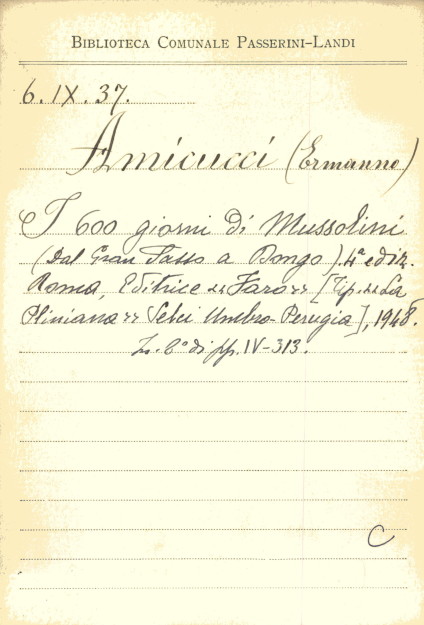 BIBLIOTECA COMUNALE PASSERINI-LANDI
6. IX. 37.
Amicucci (Ermanno)
I 600 giorni di Mussolini
(Dal Gran Sasso a Dongo). 4ª ediz.
Roma, Editrice «Faro» [Tip. «La
Pliniana» Selci Umbro-Perugia], 1948.
In. 8° di pp. IV-313.
C